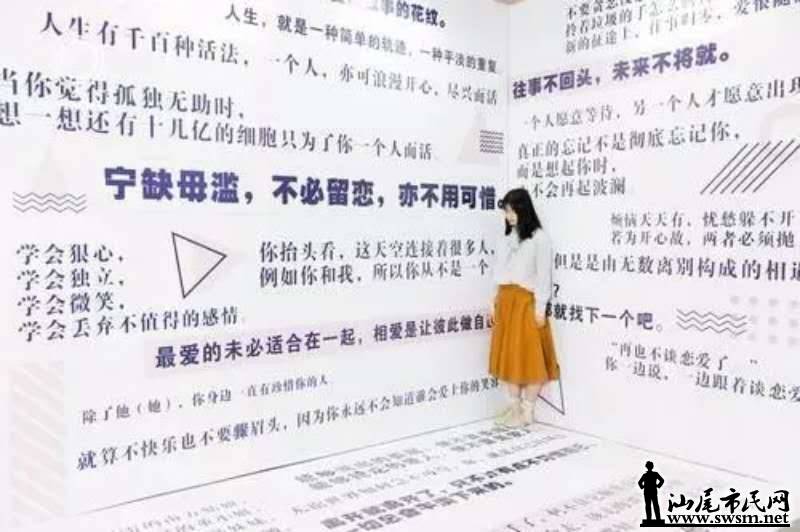 事的花纹。
人生，就是一种简单的轨迹，一种平淡的重复
人生有千百种活法，一个人，亦可浪漫开心，尽兴而活
当你觉得孤独无助时，
想一想还有十几亿的细胞只为了你一个人而活
宁缺毋滥，不必留恋，亦不用可惜。
学会狠心，
学会独立，
学会微笑，
学会丢弃不值得的感情。
你抬头看，这天空连接着很多人，
例如你和我，所以你从不是一个
最爱的未必适合在一起，相爱是让彼此做自
除了他（她），你身边一直有珍惜你的人。
就算不快乐也不要皱眉头，因为你永远不会知道谁会爱上你的笑容
拎着垃圾的手怎么
新的征途上，往事归零，爱恨随
往事不回头，未来不将就。
一个人愿意等待，另一个人才愿意出现
真正的忘记不是彻底忘记你，
而是想起你时，
不会再起波澜。
烦恼天天有，忧愁躲不开
若为开心故，两者必须抛
但是是由无数离别构成的相遇
？
就找下一个吧。
“再也不谈恋爱了”
你一边说，一边跟着谈恋爱
汕尾市民网
www.swsm.net